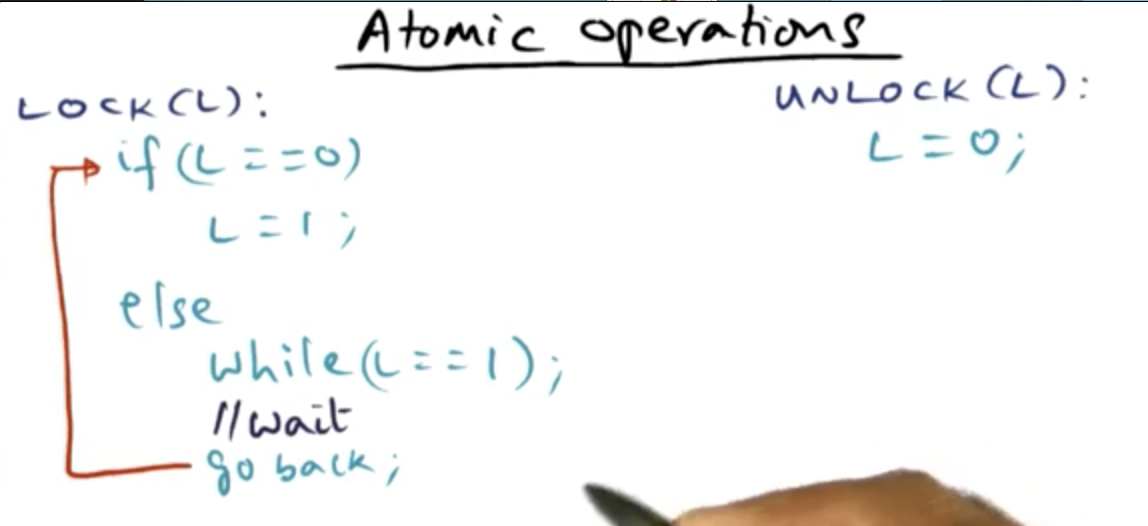 Atomic operations
LOCK(L):
if(L==0)
L=1;
else
while(L==1);
//wait
go back;
UNLOCK(L):
L=0;